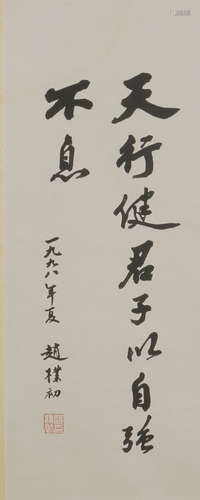 天行健君子以自強
不息
一九九八年夏 趙樸初